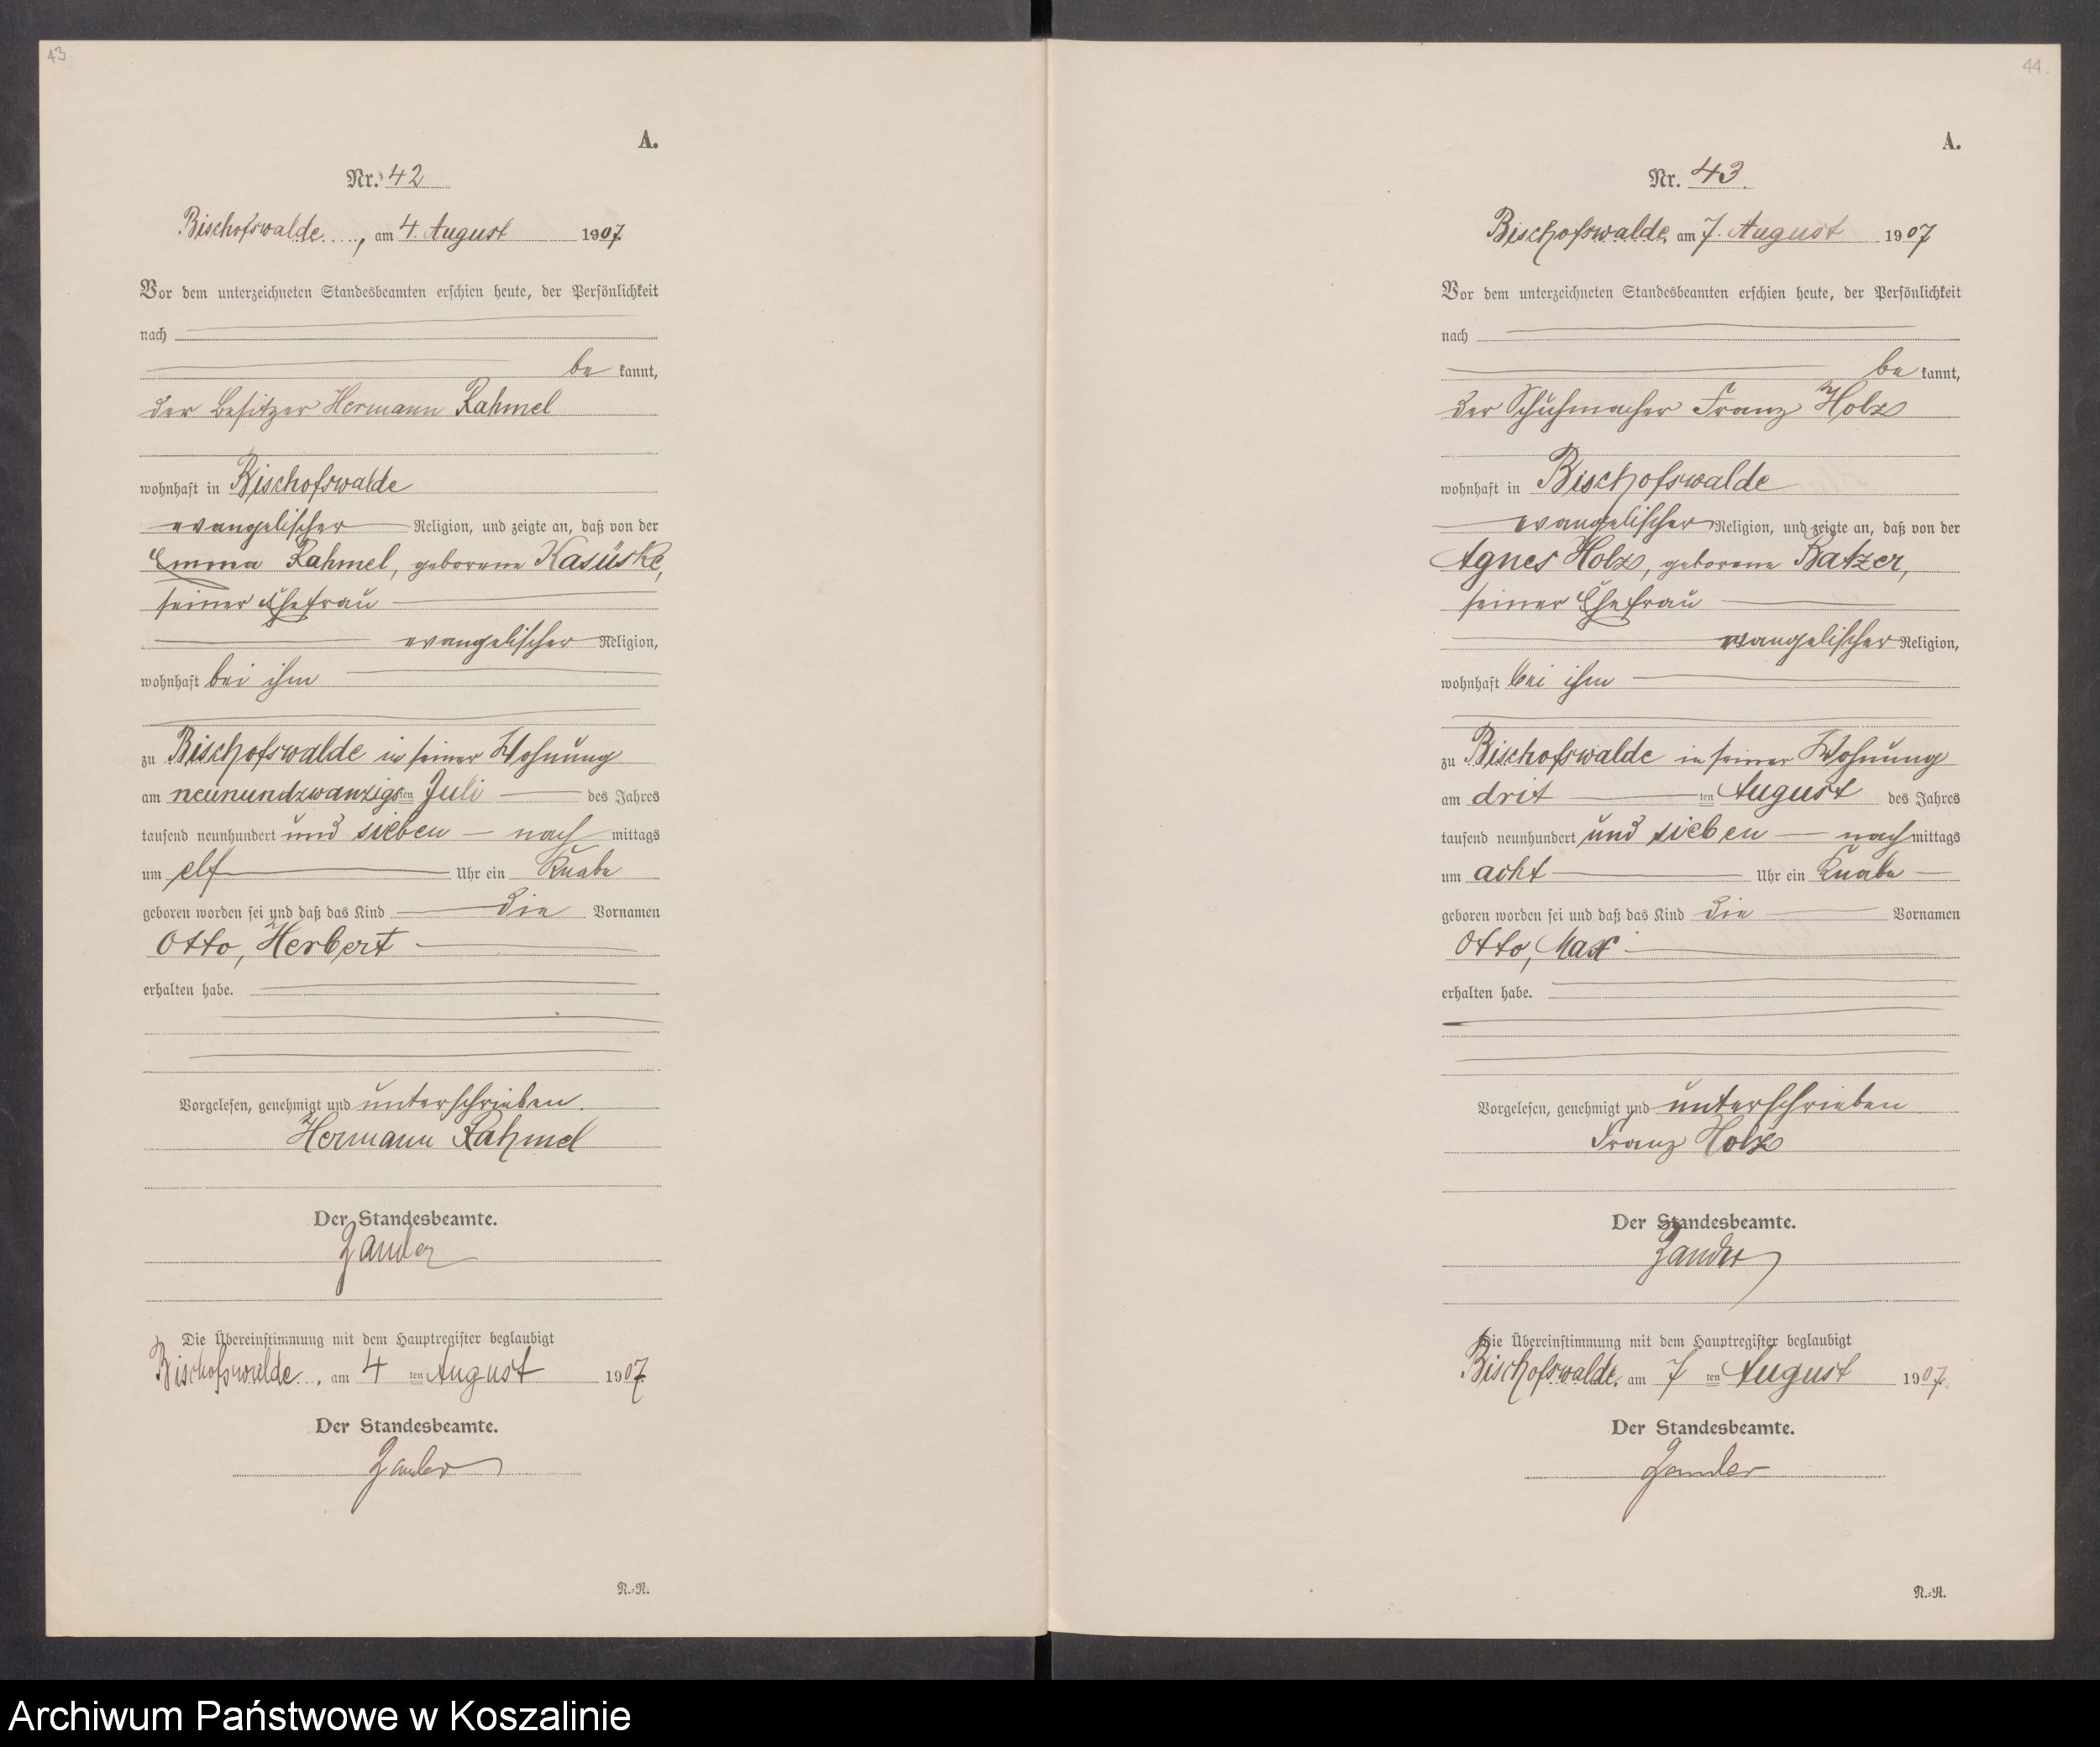 43.
A.
Nr. 42
Bischofswalde, am 4. August 1907.
Vor dem unterzeichneten Standesbeamten erschien heute, der Persönlichkeit
nach
be kannt,
der Besitzer Hermann Rahmel
wohnhaft in Bischofswalde
evangelischer Religion, und zeigte an, daß von der
Emma Rahmel, geborene Kasüske,
seiner Ehefrau
evangelischer Religion,
wohnhaft bei ihm
zu Bischofswalde in seiner Wohnung
am neunundzwanzigsten Juli des Jahres
tausend neunhundert und sieben nach mittags
um elf Uhr ein Knabe
geboren worden sei und daß das Kind die Vornamen
Otto, Herbert
erhalten habe.
Vorgelesen, genehmigt und unterschrieben.
Hermann Rahmel
Der Standesbeamte.
Zander
Die Übereinstimmung mit dem Hauptregister beglaubigt
Bischofswalde, am 4 ten August 1907.
Der Standesbeamte.
Zander
N.=R.
44.
A.
Nr. 43.
Bischofswalde, am 7. August 1907
Vor dem unterzeichneten Standesbeamten erschien heute, der Persönlichkeit
nach
be kannt,
der Schuhmacher Franz Holz
wohnhaft in Bischofswalde
evangelischer Religion, und zeigte an, daß von der
Agnes Holz, geborene Ratzer,
seiner Ehefrau
evangelischer Religion,
wohnhaft bei ihm
zu Bischofswalde in seiner Wohnung
am drit ten August des Jahres
tausend neunhundert und sieben nach mittags
um acht Uhr ein Knabe
geboren worden sei und daß das Kind die Vornamen
Otto, Max
erhalten habe.
Vorgelesen, genehmigt und unterschrieben
Franz Holz
Der Standesbeamte.
Zander
Die Übereinstimmung mit dem Hauptregister beglaubigt
Bischofswalde, am 7 ten August 1907.
Der Standesbeamte.
Zander
N.=R.
Archiwum Państwowe w Koszalinie